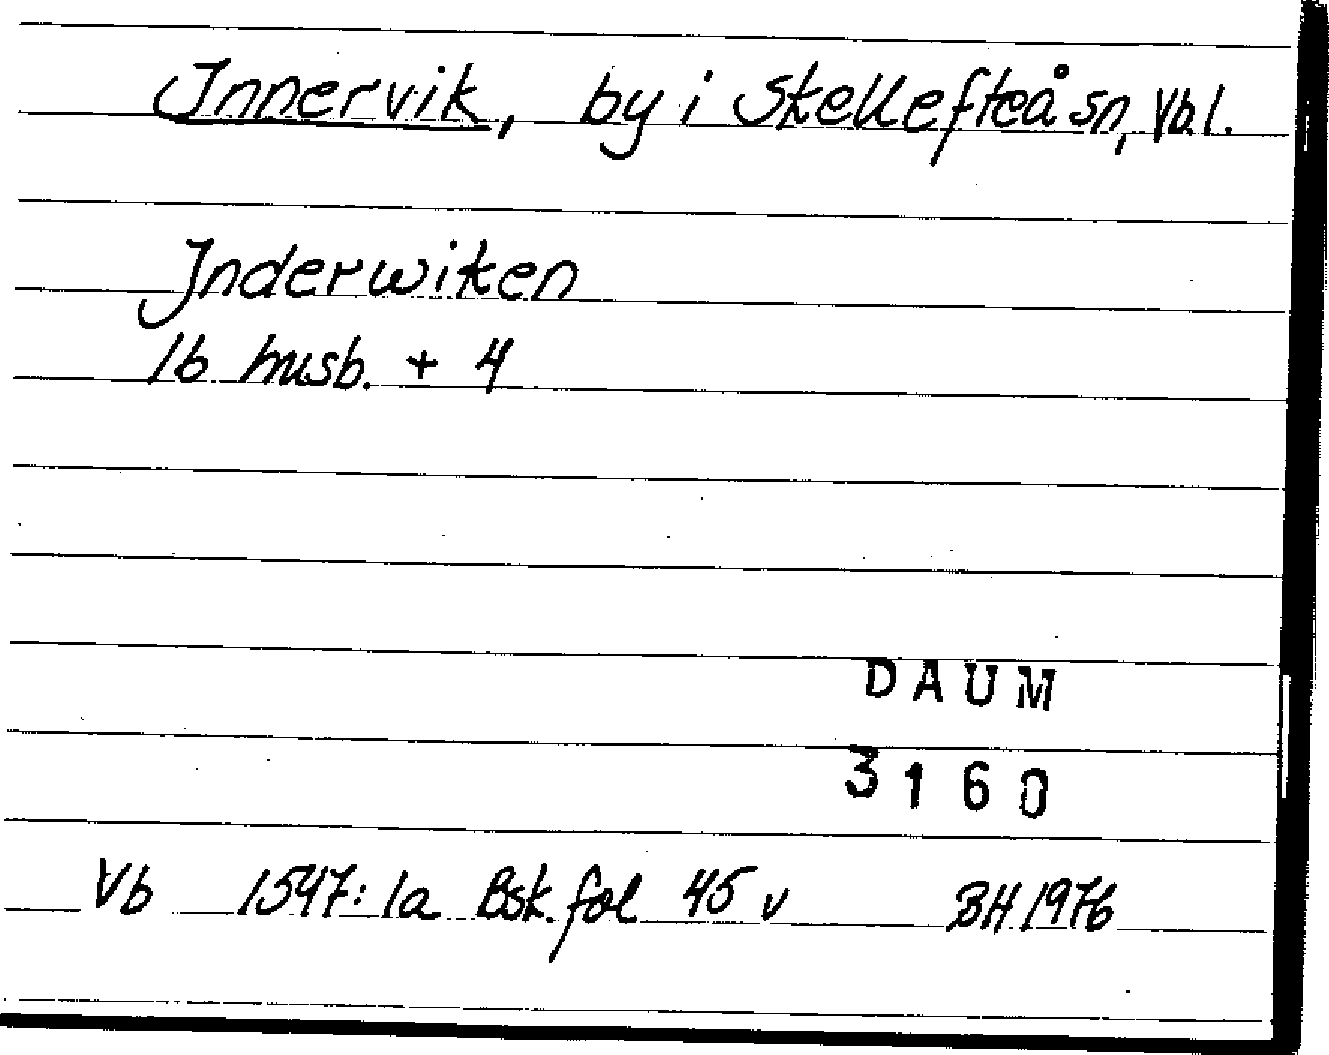 Innervik, by i Skellefteå sn, Vb. l.
Jnderwiken
16 husb. + 4
DAUM
3160
Vb 1547: 1a Bsk. fol 45 v BH 1976